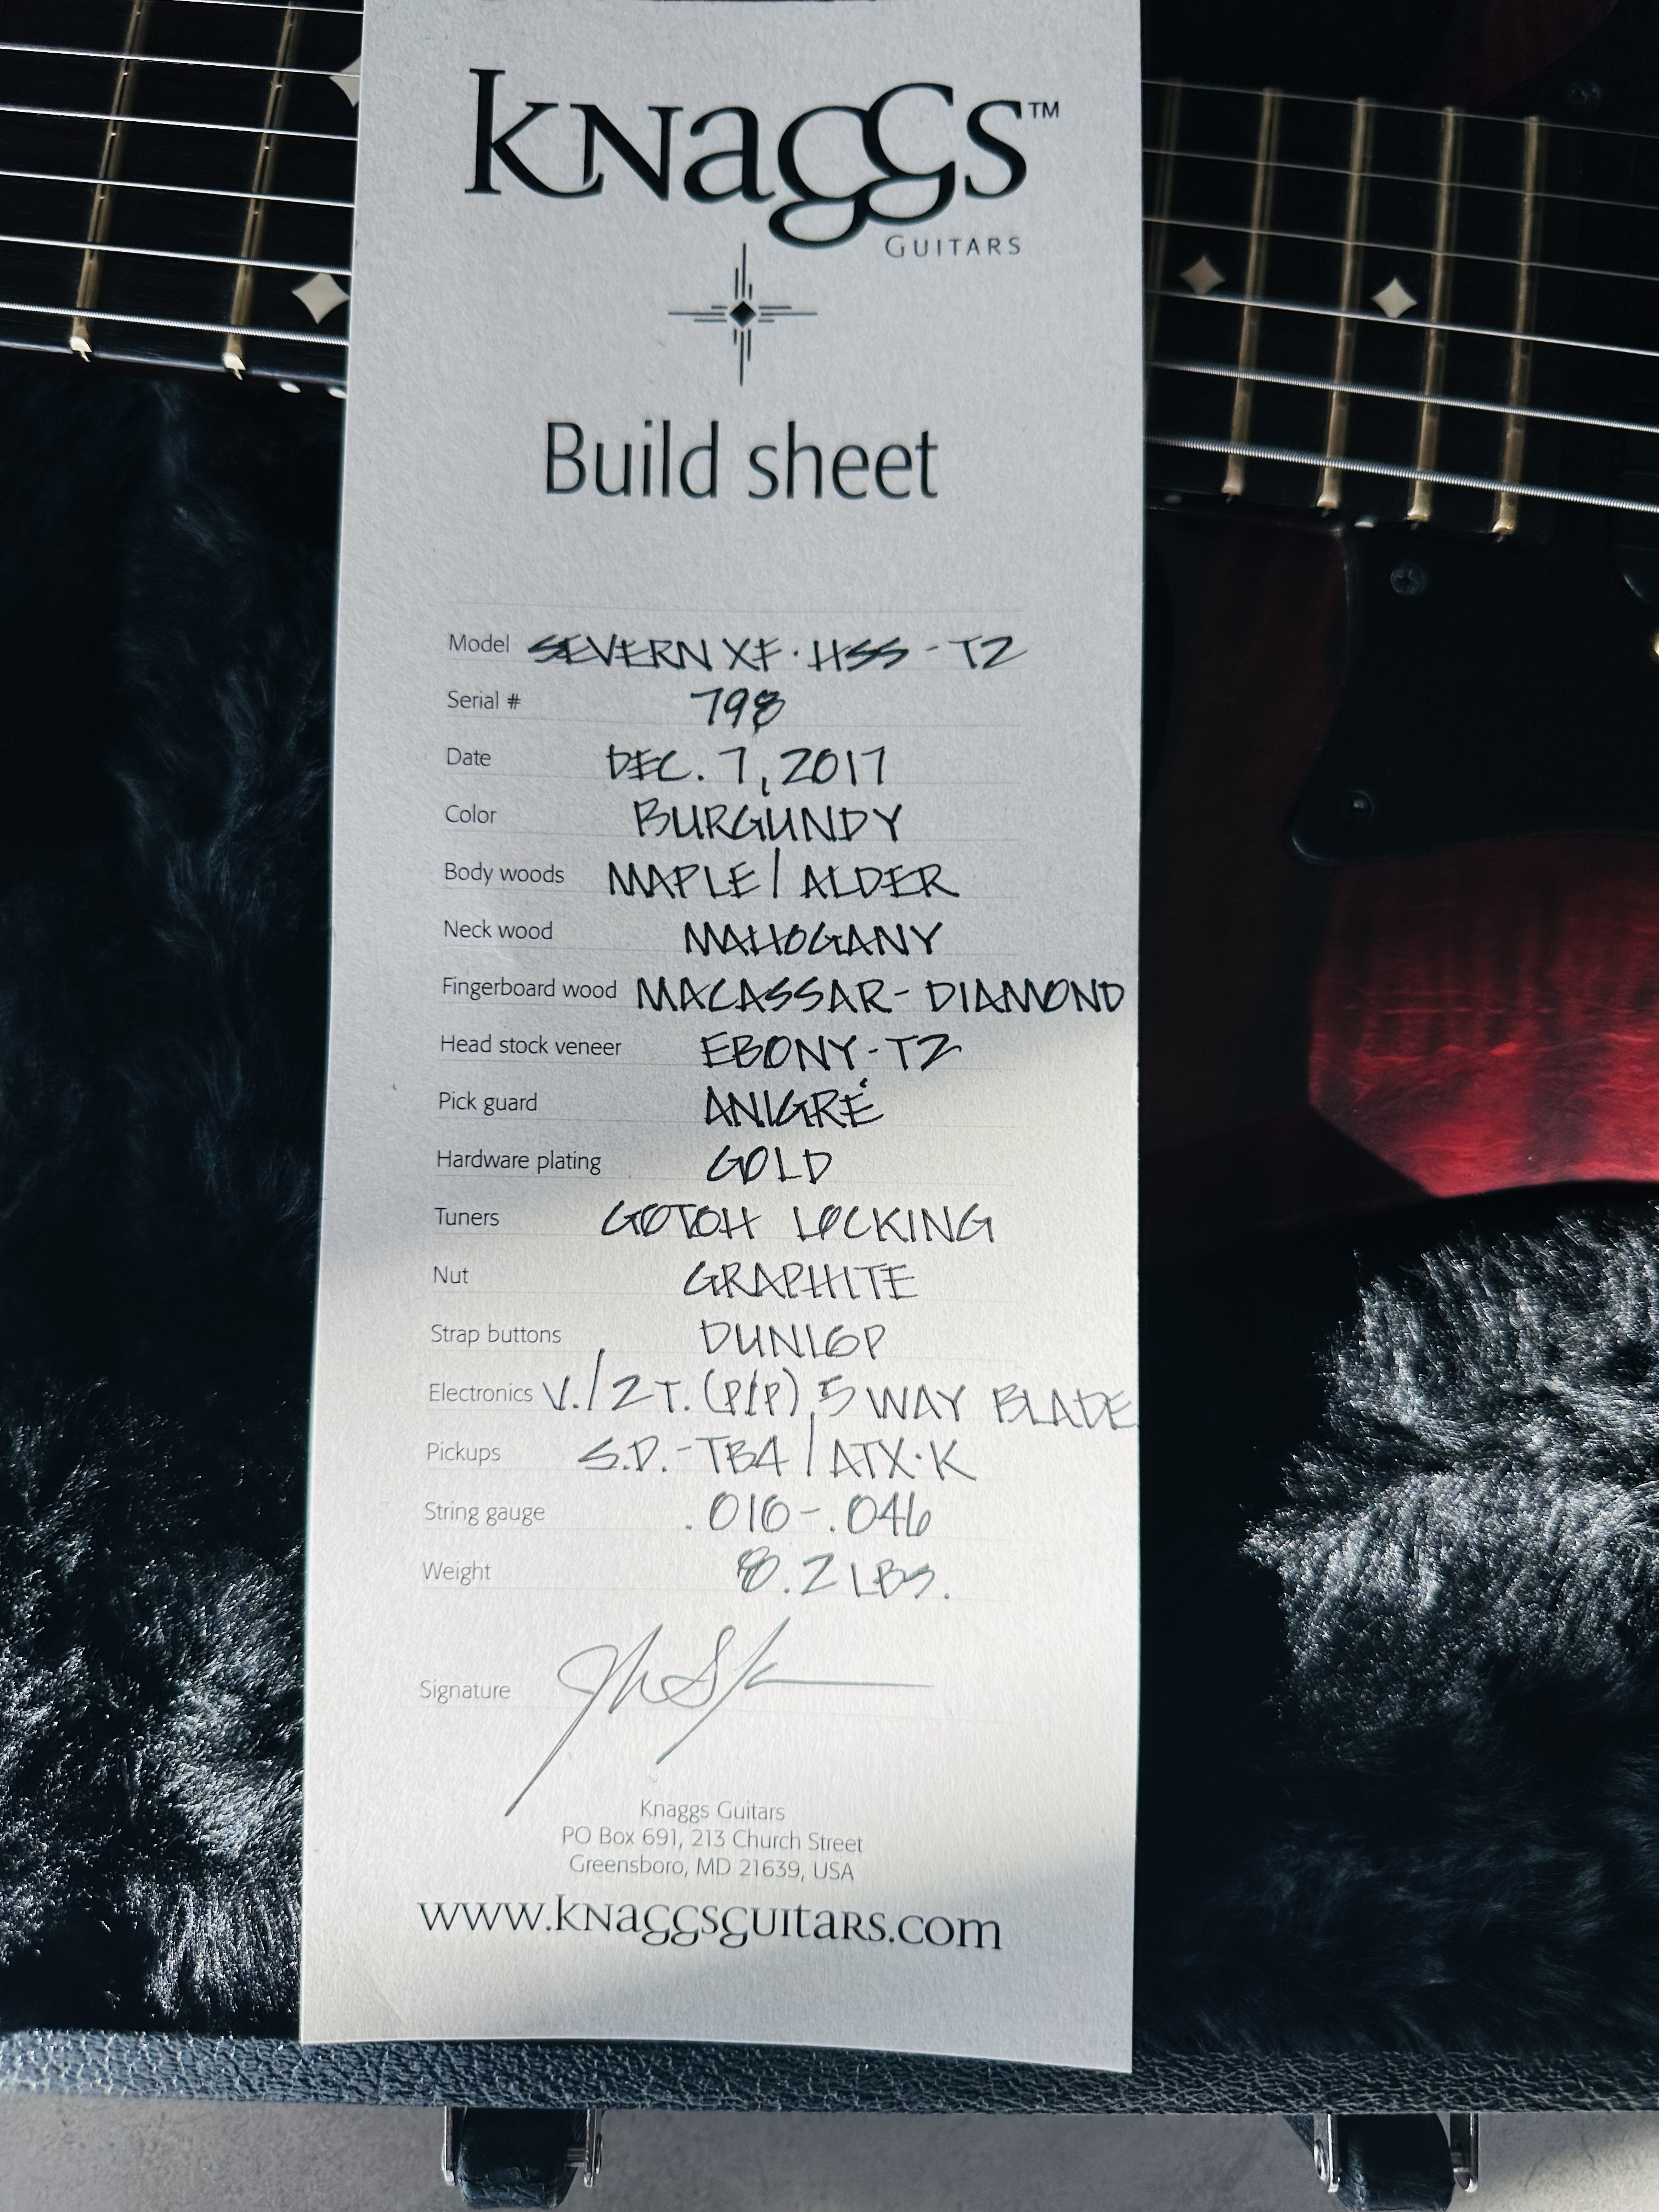 Knaggs™
GUITARS
Build sheet
Model SEVERN XF·HSS-T2
Serial # 798
Date DEC. 7, 2017
Color BURGUNDY
Body woods MAPLE / ALDER
Neck wood MAHOGANY
Fingerboard wood MACASSAR-DIAMOND
Head stock veneer EBONY-T2
Pick guard ANIGRÉ
Hardware plating GOLD
Tuners GOTOH LOCKING
Nut GRAPHITE
Strap buttons DUNLOP
Electronics V./2T. (P/P), 5 WAY BLADE
Pickups S.D.-TB4 / ATX·K
String gauge .010-.046
Weight 8.2 LBS.
Signature
Knaggs Guitars
PO Box 691, 213 Church Street
Greensboro, MD 21639, USA
www.knaggsguitars.com